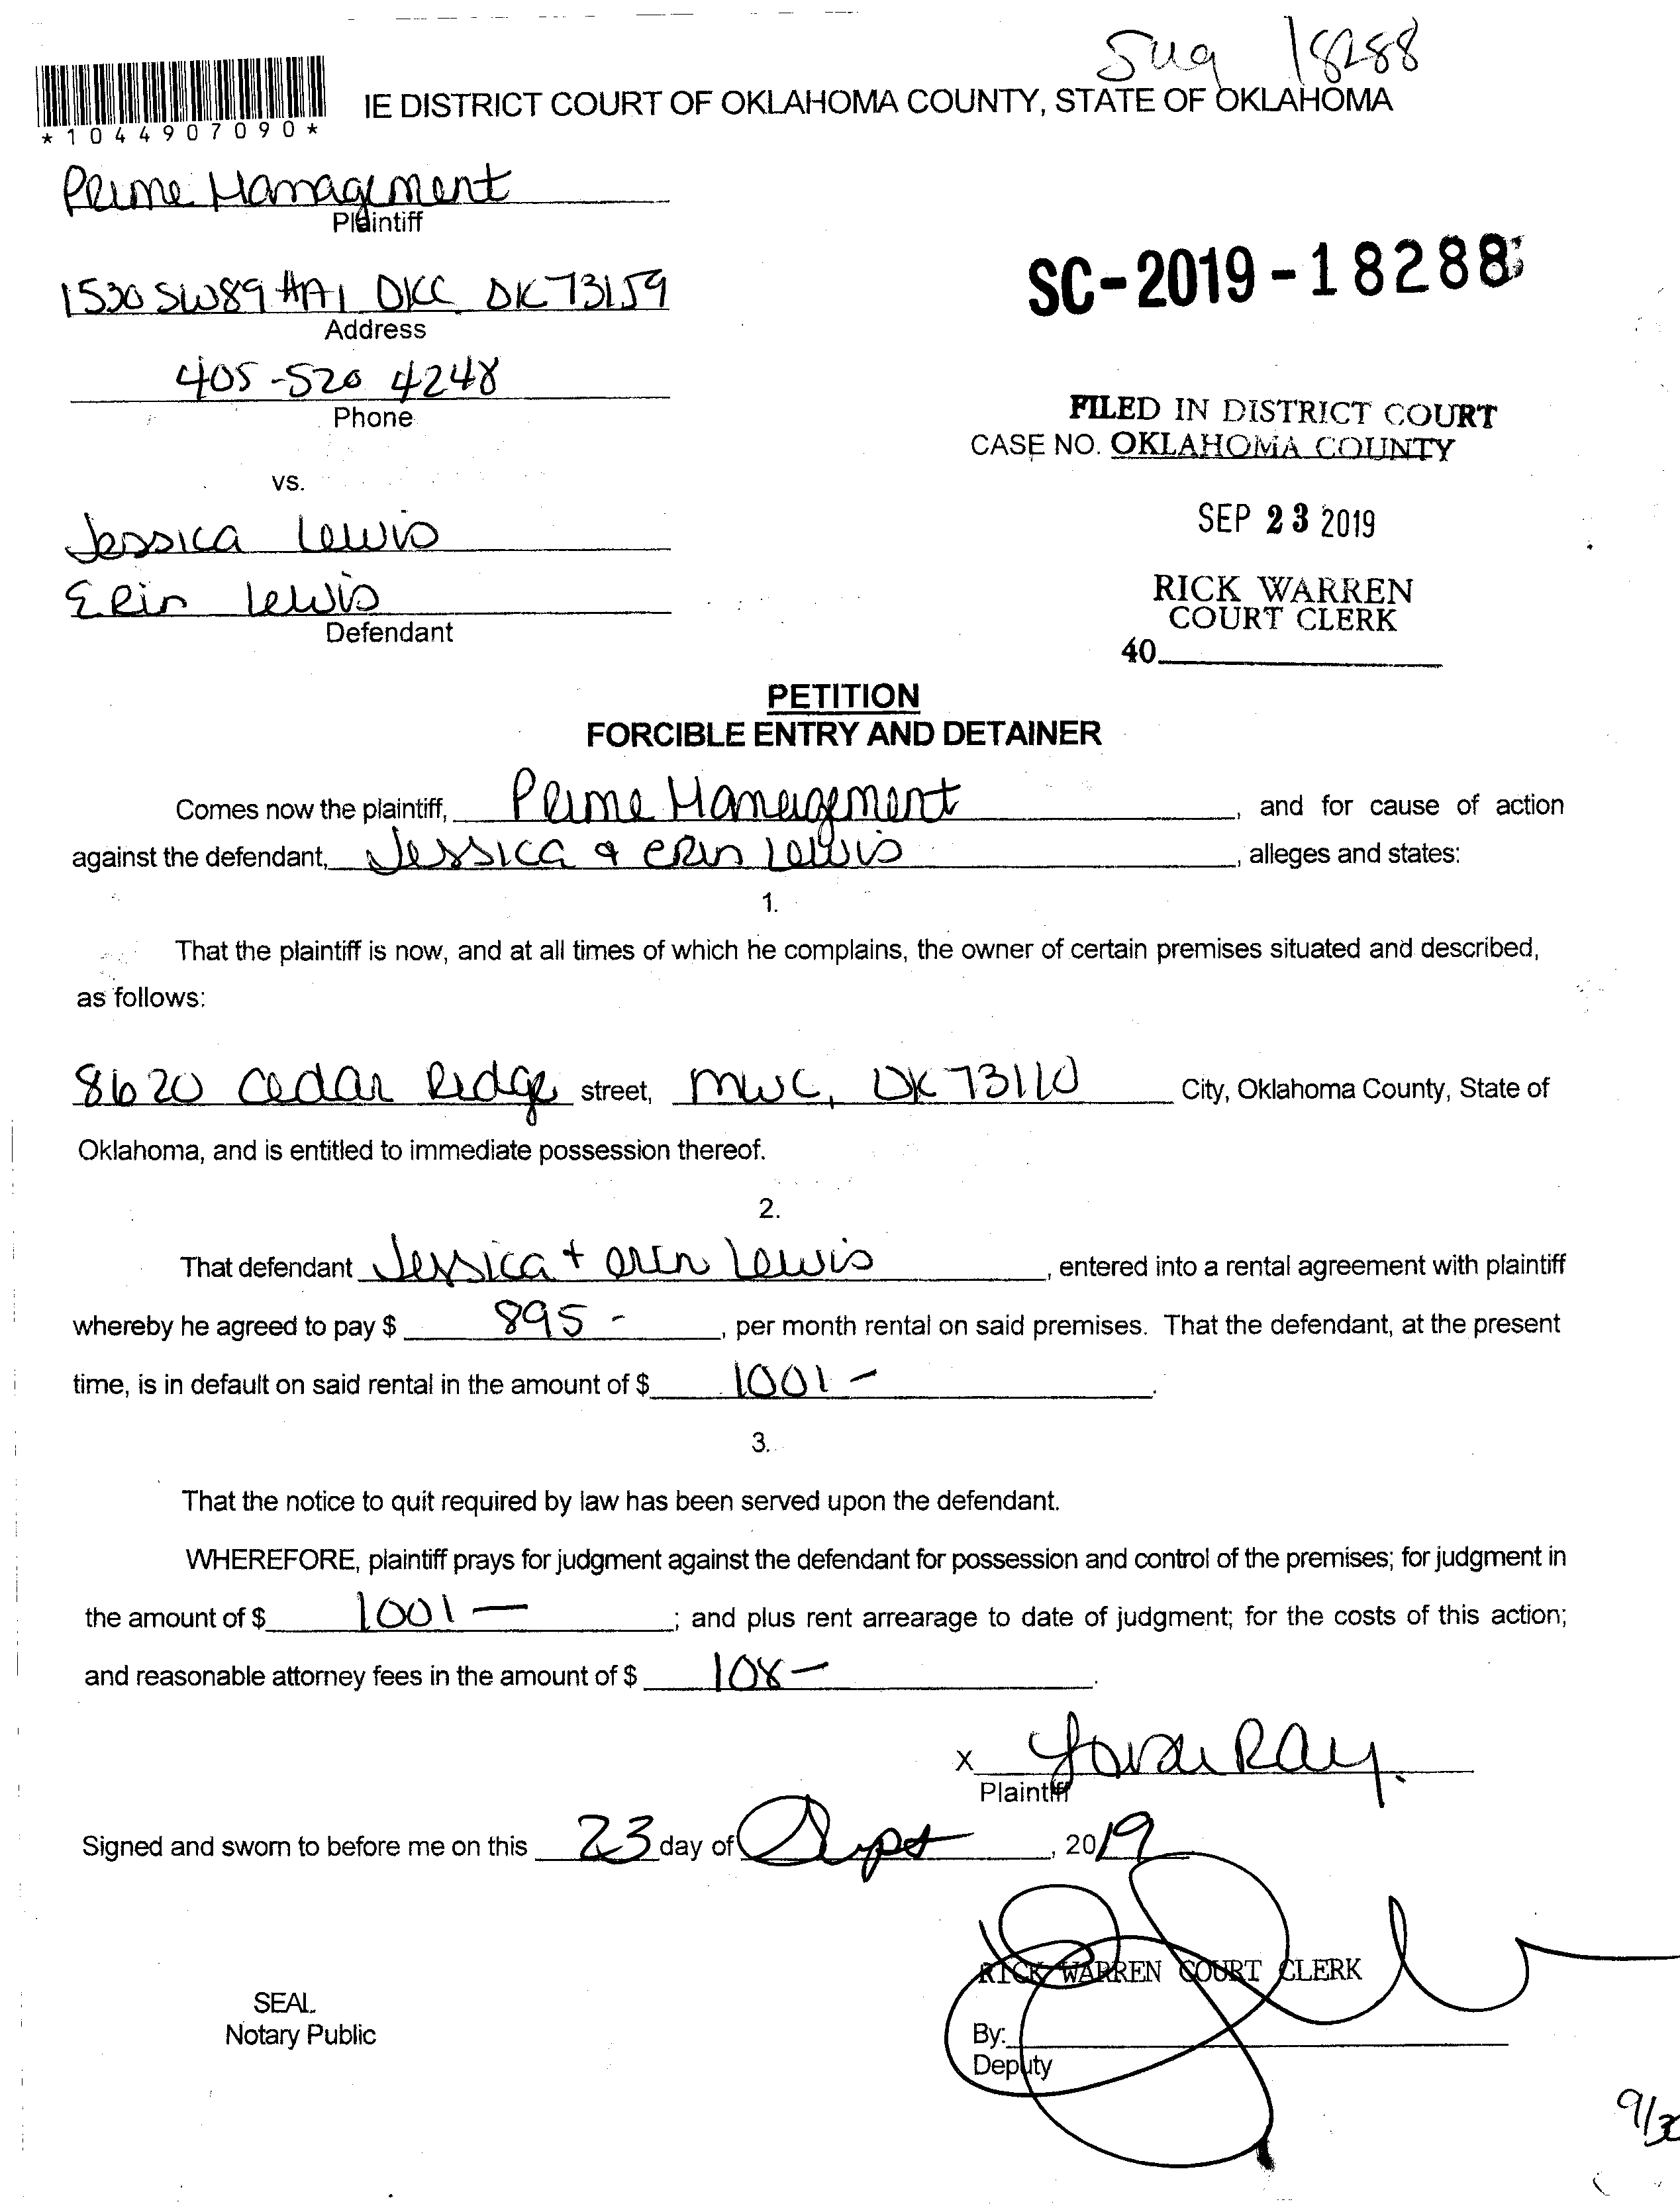 18288
IE DISTRICT COURT OF OKLAHOMA COUNTY, STATE OF OKLAHOMA
*1044907090*
Prime Management
Plaintiff
1530 SW 89 #A1 OKC OK 73159
Address
SC-2019-18288
405-520 4248
Phone
FILED IN DISTRICT COURT
CASE NO. OKLAHOMA COUNTY
vs.
SEP 23 2019
Jessica Lewis
Erin Lewis
Defendant
RICK WARREN
COURT CLERK
40
PETITION
FORCIBLE ENTRY AND DETAINER
Comes now the plaintiff, Prime Management, and for cause of action
against the defendant, Jessica & Erin Lewis, alleges and states:
1.
That the plaintiff is now, and at all times of which he complains, the owner of certain premises situated and described,
as follows:
8620 Cedar Ridge street, MWC, OK 73110 City, Oklahoma County, State of
Oklahoma, and is entitled to immediate possession thereof.
2.
That defendant Jessica + Erin Lewis, entered into a rental agreement with plaintiff
whereby he agreed to pay $ 895 -, per month rental on said premises. That the defendant, at the present
time, is in default on said rental in the amount of $ 1001 -.
3.
That the notice to quit required by law has been served upon the defendant.
WHEREFORE, plaintiff prays for judgment against the defendant for possession and control of the premises; for judgment in
the amount of $ 1001 -; and plus rent arrearage to date of judgment; for the costs of this action;
and reasonable attorney fees in the amount of $ 108 -.
X Ray.
Plaintiff
Signed and sworn to before me on this 23 day of Sept, 2019
RICK WARREN COURT CLERK
SEAL
Notary Public
By:
Deputy
9/30